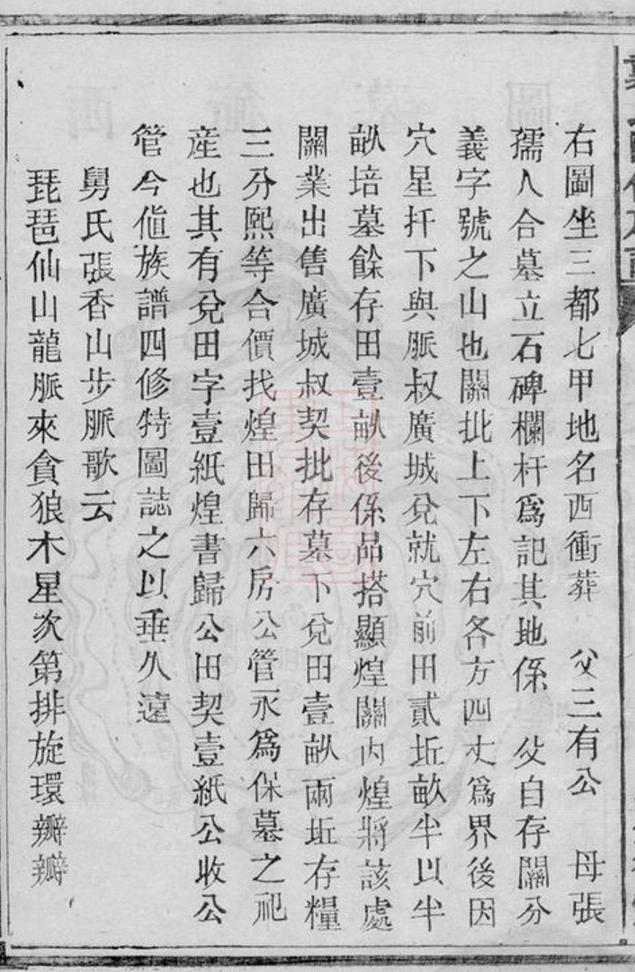 右圖坐三都七甲地名西衝葬　父三有公　母張
孺人合墓立石碑欄杆爲記其地係　父自存鬮分
義字號之山也鬮批上下左右各方四丈爲界後因
穴星扦下與脈叔廣城兌就穴前田貳坵畝半以半
畝培墓餘存田壹畝後係品搭顯煌鬮内煌將該處
鬮業出售廣城叔契批存墓下兌田壹畝兩坵存糧
三分熙等合價找煌田歸六房公管永爲保墓之祀
産也其有兌田字壹紙煌書歸公田契壹紙公收公
管今值族譜四修特圖誌之以垂久遠
舅氏張香山步脈歌云
琵琶仙山龍脈來貪狼木星次第排旋環瓣瓣